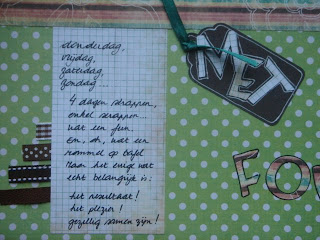 donderdag,
vrijdag,
zaterdag,
zondag...
4 dagen scrappen,
enkel scrappen...
wat een fun.
En, oh, wat een
rommel op tafel
Maar het enige wat
echt belangrijk is:
het resultaat!
het plezier!
gezellig samen zijn!
MET
FO